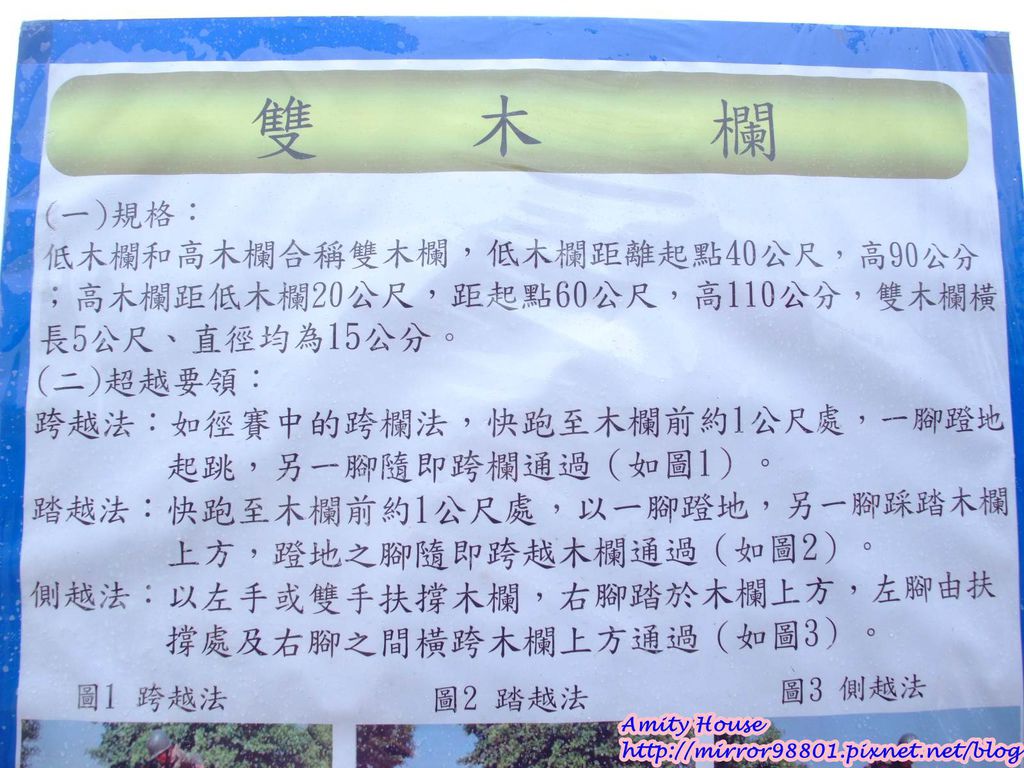 雙木欄
(一)規格：
低木欄和高木欄合稱雙木欄，低木欄距離起點40公尺，高90公分
；高木欄距低木欄20公尺，距起點60公尺，高110公分，雙木欄橫
長5公尺、直徑均為15公分。
(二)超越要領：
跨越法：如徑賽中的跨欄法，快跑至木欄前約1公尺處，一腳蹬地
起跳，另一腳隨即跨欄通過（如圖1）。
踏越法：快跑至木欄前約1公尺處，以一腳蹬地，另一腳踩踏木欄
上方，蹬地之腳隨即跨越木欄通過（如圖2）。
側越法：以左手或雙手扶撐木欄，右腳踏於木欄上方，左腳由扶
撐處及右腳之間橫跨木欄上方通過（如圖3）。
圖1 跨越法 圖2 踏越法 圖3 側越法
Amity House
http://mirror98801.pixnet.net/blog